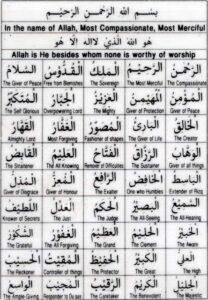 بسم الله الرحمن الرحيم
In the name of Allah, Most Compassionate, Most Merciful
هو الله الذي لا اله الا هو
Allah is He besides whom none is worthy of worship
الرحمن الرحيم الملك القدوس السلام
The Giver of Peace Free from Blemishes The Sovereign The Most Merciful The Compassionate
المؤمن المهيمن العزيز الجبار المتكبر
The Self Glorious Overpowering Lord The Mighty Giver of Protection Giver of Peace
الخالق البارئ المصور الغفار القهار
Almighty Lord Most Forgiving Fashioner of shapes The Giver of Life The Creator
الوهاب الرزاق الفتاح العليم القابض
The Straitener The All Knowing Remover of Dificulties The Sustainer Giver of all things
الباسط الخافض الرافع المعز المذل
Giver of Disgrace Giver of Honour The Exalter One who Humbles Extender of Rizq
السميع البصير الحكم العدل اللطيف
Knower of Secrets The Just The Judge The All-Seeing The All-Hearing
الخبير الحليم العظيم الغفور الشكور
The Grateful All Forgiving The Grand The Clement The Aware
العلي الكبير الحفيظ المقيت الحسيب
The Reckoner Controller of things The Protector The Great The High
الجليل الكريم الرقيب المجيب الواسع
Ample-Giving Responder to Du'aas The Caretaker The Benevolent The Majestic